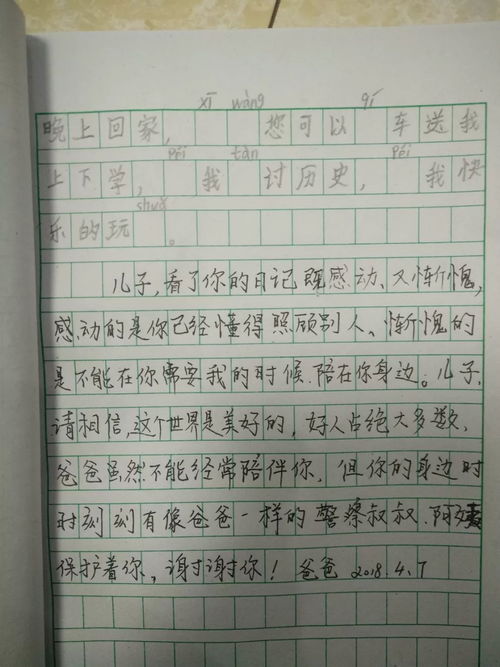 xī wàng qí
晚上回家, 您可以 车送我
péi tán péi
上下学, 我 讨历史, 我快
shuǎ
乐的玩 。
儿子,看了你的日记既感动、又惭愧,
感动的是你已经懂得照顾别人、惭愧的
是不能在你需要我的时候陪在你身边。儿子,
请相信,这个世界是美好的,好人占绝大多数,
爸爸虽然不能经常陪伴你,但你的身边时
时刻刻有像爸爸一样的警察叔叔、阿姨
保护着你,谢谢你! 爸爸 2018.4.7